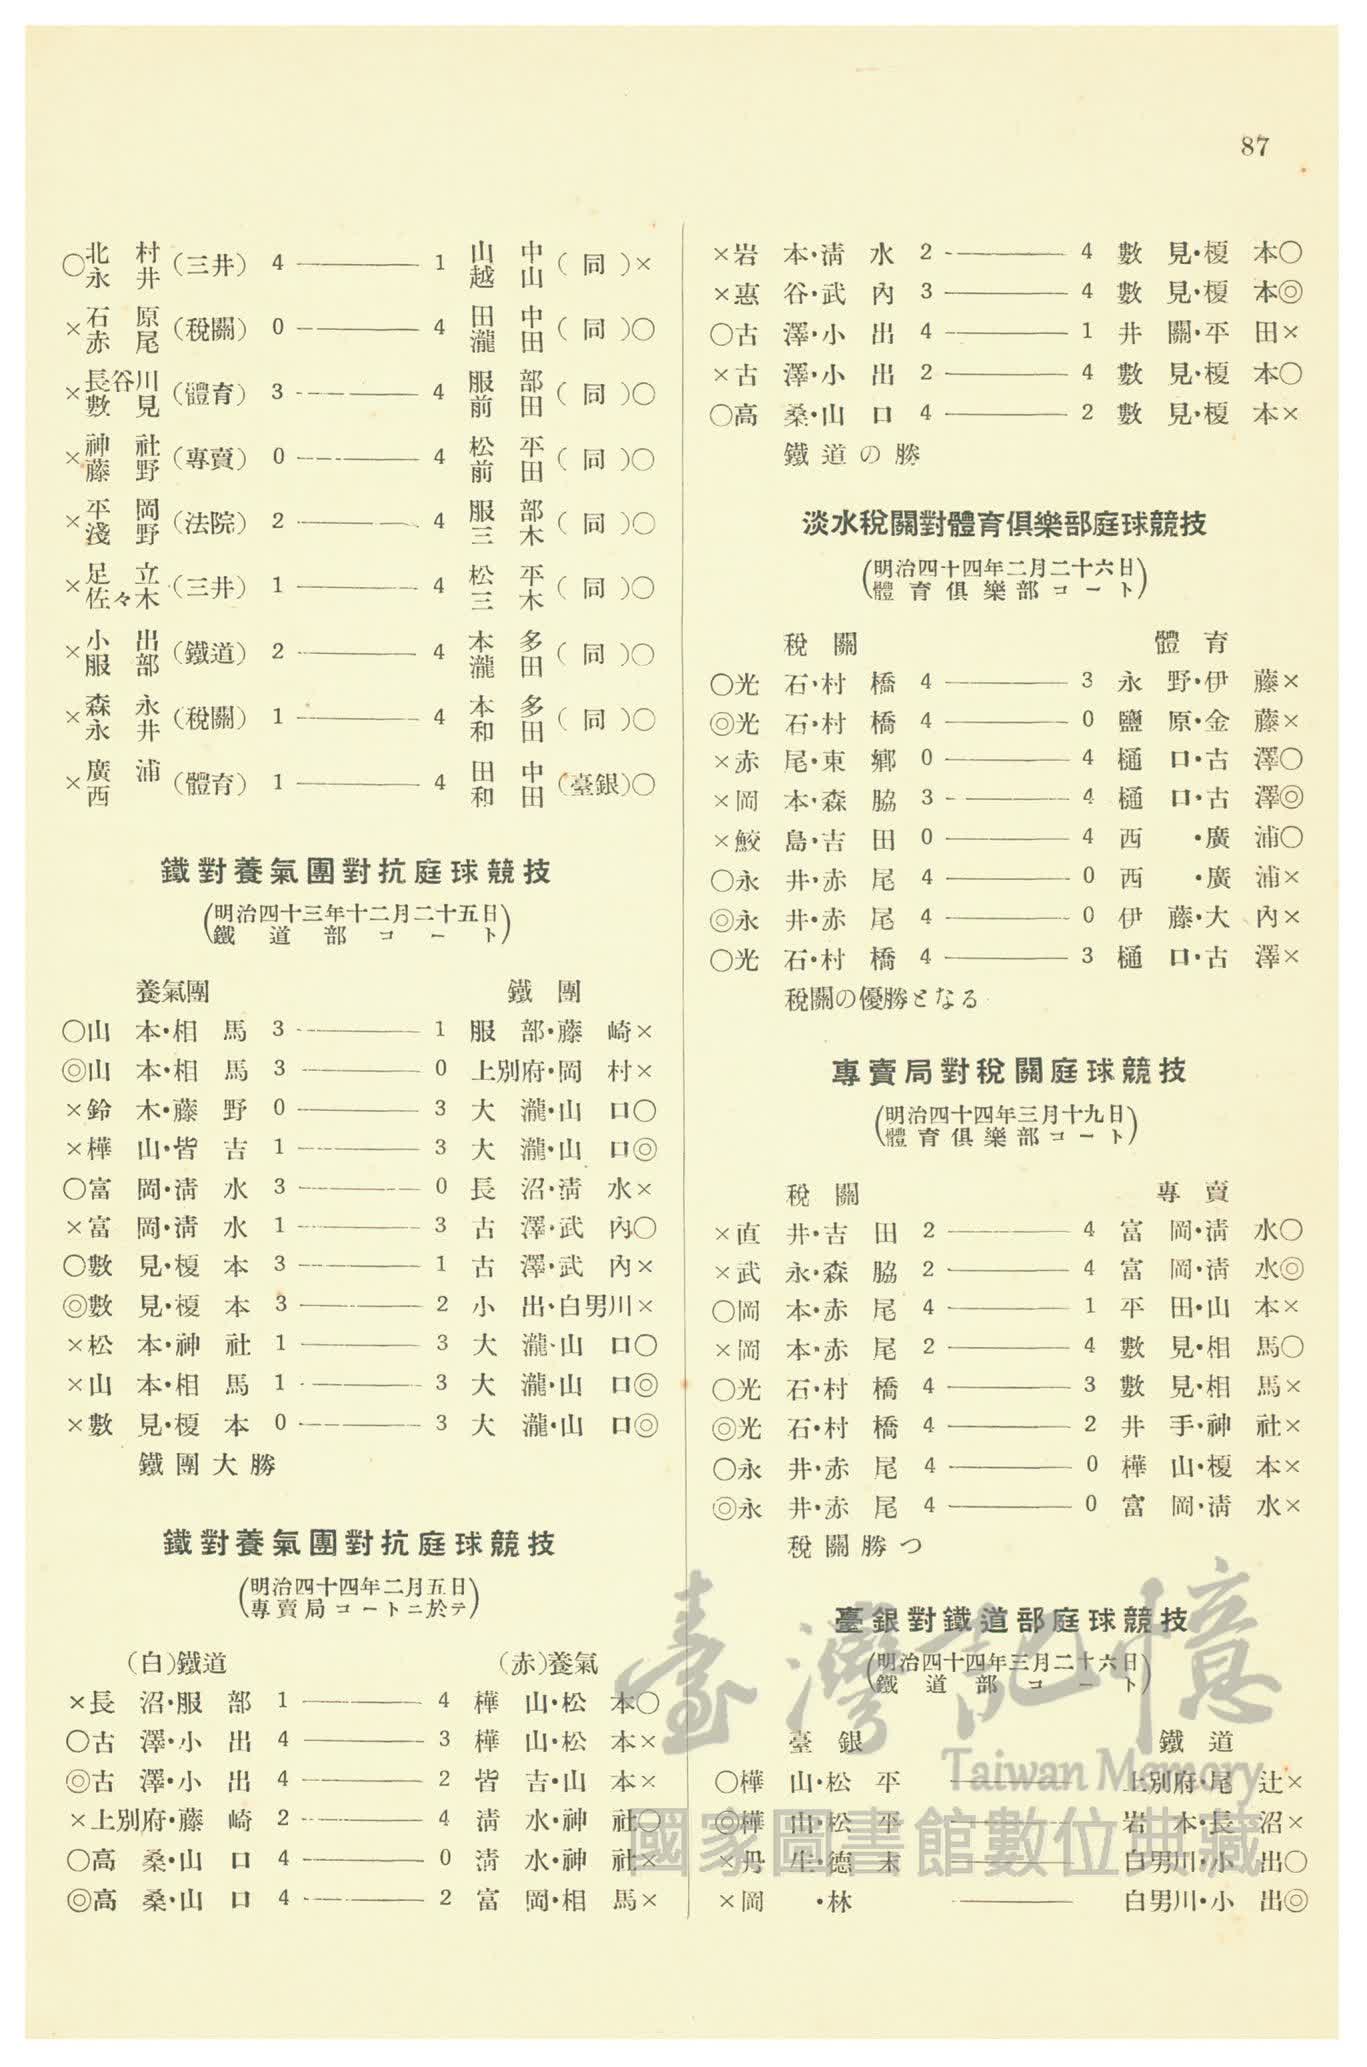 87
○北村 永井(三井) 4 ――― 1 山中 越山(同)×
×石原 赤尾(稅關) 0 ――― 4 田中 瀧田(同)○
×長谷川 數見(體育) 3 ――― 4 服部 前田(同)○
×神社 藤野(專賣) 0 ――― 4 松平 前田(同)○
×平岡 淺野(法院) 2 ――― 4 服部 三木(同)○
×足立 佐々木(三井) 1 ――― 4 松平 三木(同)○
×小出 服部(鐵道) 2 ――― 4 本多 瀧田(同)○
×森永 永井(稅關) 1 ――― 4 本多 和田(同)○
×廣浦 西(體育) 1 ――― 4 田中 和田(臺銀)○
鐵對養氣團對抗庭球競技
(明治四十三年十二月二十五日
鐵道部コート)
養氣團 鐵團
○山本・相馬 3 ――― 1 服部・藤崎×
◎山本・相馬 3 ――― 0 上別府・岡村×
×鈴木・藤野 0 ――― 3 大瀧・山口○
×樺山・皆吉 1 ――― 3 大瀧・山口◎
○富岡・淸水 3 ――― 0 長沼・淸水×
×富岡・淸水 1 ――― 3 古澤・武內○
○數見・榎本 3 ――― 1 古澤・武內×
◎數見・榎本 3 ――― 2 小出・白男川×
×松本・神社 1 ――― 3 大瀧・山口○
×山本・相馬 1 ――― 3 大瀧・山口◎
×數見・榎本 0 ――― 3 大瀧・山口◎
鐵團大勝
鐵對養氣團對抗庭球競技
(明治四十四年二月五日
專賣局コートニ於テ)
(白)鐵道 (赤)養氣
×長沼・服部 1 ――― 4 樺山・松本○
○古澤・小出 4 ――― 3 樺山・松本×
◎古澤・小出 4 ――― 2 皆吉・山本×
×上別府・藤崎 2 ――― 4 淸水・神社○
○高桑・山口 4 ――― 0 淸水・神社×
◎高桑・山口 4 ――― 2 富岡・相馬×
×岩本・淸水 2 ――― 4 數見・榎本○
×惠谷・武內 3 ――― 4 數見・榎本◎
○古澤・小出 4 ――― 1 井關・平田×
×古澤・小出 2 ――― 4 數見・榎本○
○高桑・山口 4 ――― 2 數見・榎本×
鐵道の勝
淡水稅關對體育俱樂部庭球競技
(明治四十四年二月二十六日
體育俱樂部コート)
稅關 體育
○光石・村橋 4 ――― 3 永野・伊藤×
◎光石・村橋 4 ――― 0 鹽原・金藤×
×赤尾・東鄉 0 ――― 4 樋口・古澤○
×岡本・森脇 3 ――― 4 樋口・古澤◎
×鮫島・吉田 0 ――― 4 西・廣浦○
○永井・赤尾 4 ――― 0 西・廣浦×
◎永井・赤尾 4 ――― 0 伊藤・大內×
○光石・村橋 4 ――― 3 樋口・古澤×
稅關の優勝となる
專賣局對稅關庭球競技
(明治四十四年三月十九日
體育俱樂部コート)
稅關 專賣
×直井・吉田 2 ――― 4 富岡・淸水○
×武永・森脇 2 ――― 4 富岡・淸水◎
○岡本・赤尾 4 ――― 1 平田・山本×
×岡本・赤尾 2 ――― 4 數見・相馬○
○光石・村橋 4 ――― 3 數見・相馬×
◎光石・村橋 4 ――― 2 井手・神社×
○永井・赤尾 4 ――― 0 樺山・榎本×
◎永井・赤尾 4 ――― 0 富岡・淸水×
稅關勝つ
臺銀對鐵道部庭球競技
(明治四十四年三月二十六日
鐵道部コート)
臺銀 鐵道
○樺山・松平 ――― 上別府・尾辻×
◎樺山・松平 ――― 岩本・長沼×
×丹生・德末 ――― 白男川・小出○
×岡・林 ――― 白男川・小出◎
臺灣記憶
Taiwan Memory
國家圖書館數位典藏